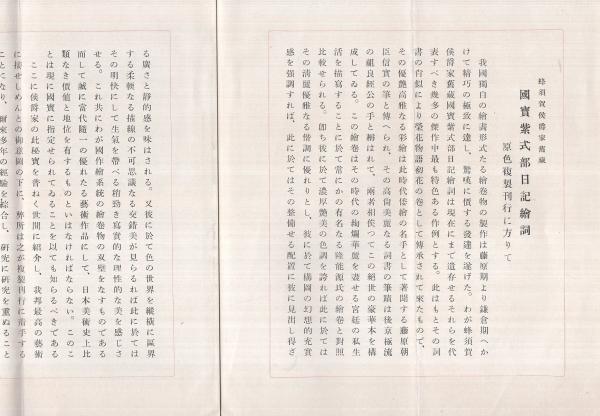 蜂須賀侯爵家舊藏
國寶紫式部日記繪詞
原色複製刊行に方りて
我國獨自の繪畫形式たる繪卷物の製作は藤原期より鎌倉期へか
けて精巧の極致に達し、驚嘆に價する發達を遂げた。わが蜂須賀
侯爵家舊藏國寶紫式部日記繪詞は現在にまで遺存せるそれらを代
表すべき幾多の傑作中最も特色ある作例とする。此はもとその詞
書の肖似により榮花物語初花の卷として傳承されて來たもので、
その優艷高雅なる彩繪は此時代倭繪の名手として著聞する藤原朝
臣信實の筆と傳へられ、その高尙美麗なる詞書の筆蹟は後京極流
の祖良經公の手と稱はれて、兩者相俟つてこの絕世の豪華本を構
成してゐる。この繪卷はその時代の絢爛華麗を表せる宮廷の私生
活を描寫することに於て常にかの有名なる隆能源氏の繪卷と對照
比較せられる。卽ち彼に於て濃厚艷美の色調を誇れば此に於ては
その淸麗優雅なる偕調に優れりとし、彼に於て構圖の幻想的充實
感を强調すれば、此に於てはその整備せる配置に彼に見出し得ざ
る廣さと靜的感を味はされる。又彼に於て色の世界を縱橫に區界
する柔軟なる描線の不可思議なる交錯美が見らるれば此に於ては
その明快にして生氣を帶べる稍勁き寫實的な理性的な美を感じさ
せる。これ共にわが國作繪系統の繪卷物の双壁をなすものである
而して誠に當代隨一の優れたる藝術作品にして、日本美術史上比
類なき價値と地位を有するものといはなければならない。このこ
とは現に國寶に指定せられてゐることを以ても知るべきである
ここに侯爵家の此秘寶を普ねく世間に紹介し、我邦最高の藝術
に接せしめんとの御意圖の下に、弊所は之が複製刊行に着手する
ことになり、爾來多年の經驗を綜合し、研究に研究を重ねること